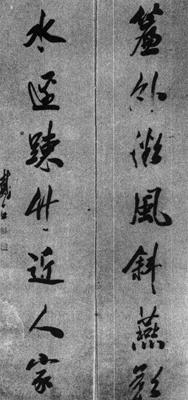 簾外微風斜燕影
水邊疎竹近人家